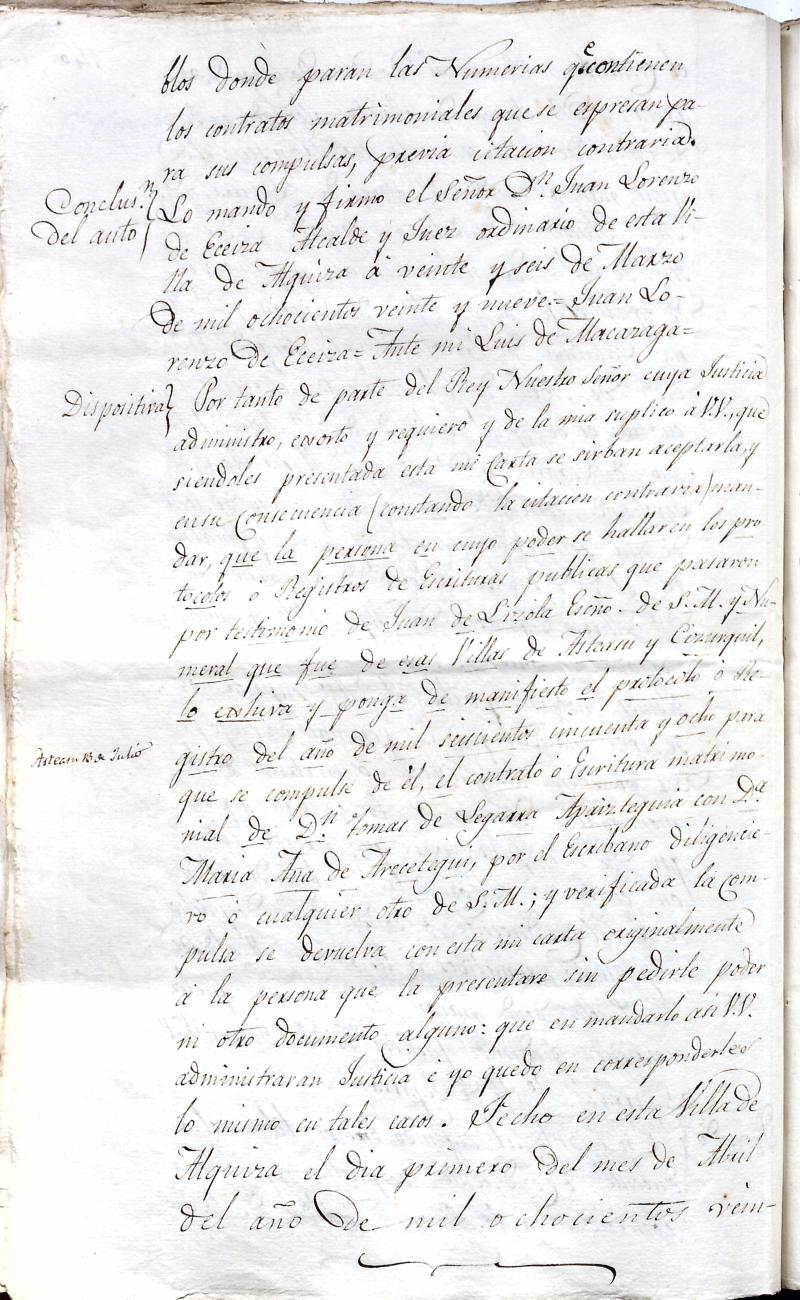 blos donde paran las Numerias qe. contienen
los contratos matrimoniales que se espresan pa-
ra sus compulsas, previa citacion contraria.
Conclusn.
del auto
Lo mando y firmo el Señor Dn. Juan Lorenzo
de Eceiza Alcalde y Juez ordinario de esta Vi-
lla de Alquiza á veinte y seis de Marzo
de mil ochocientos veinte y nueve.= Juan Lo-
renzo de Eceiza= Ante mi Luis de Macazaga=
Dispositiva
Por tanto de parte del Rey Nuestro Señor cuya Justicia
administro, exorto y requiero y de la mia suplico á V.V., que
siendoles presentada esta mi Carta se sirban aceptarla, y
en su consecuencia (constando la citacion contraria) man-
dar, que la persona en cuyo poder se hallaren los pro-
tocolos ó Registros de Escrituras publicas que pasaron
por testimonio de Juan de Lizola Esño. de S.M. y Nu-
meral que fue de esas Villas de Asteasu y Cizurquil,
lo exhiva y ponga de manifiesto el protocolo ó Re-
Asteasu 13 de Julio
gistro del año de mil seiscientos cincuenta y ocho para
que se compulse de él, el contrato ó Escritura matrimo-
nial de Dn. Tomas de Legarra Apaizteguia con Da.
Maria Aña de Arecetegui, por el Escribano diligencie-
ro ó cualquier otro de S.M.; y verificada la com-
pulsa se devuelva con esta mi carta originalmente
á la persona que la presentare sin pedirle poder
ni otro documento alguno: que en mandarlo asi V.V.
administraran Justicia é yo quedo en corresponderles
lo mismo en tales casos. Fecho en esta Villa de
Alquiza el dia primero del mes de Abril
del año de mil ochocientos vein-